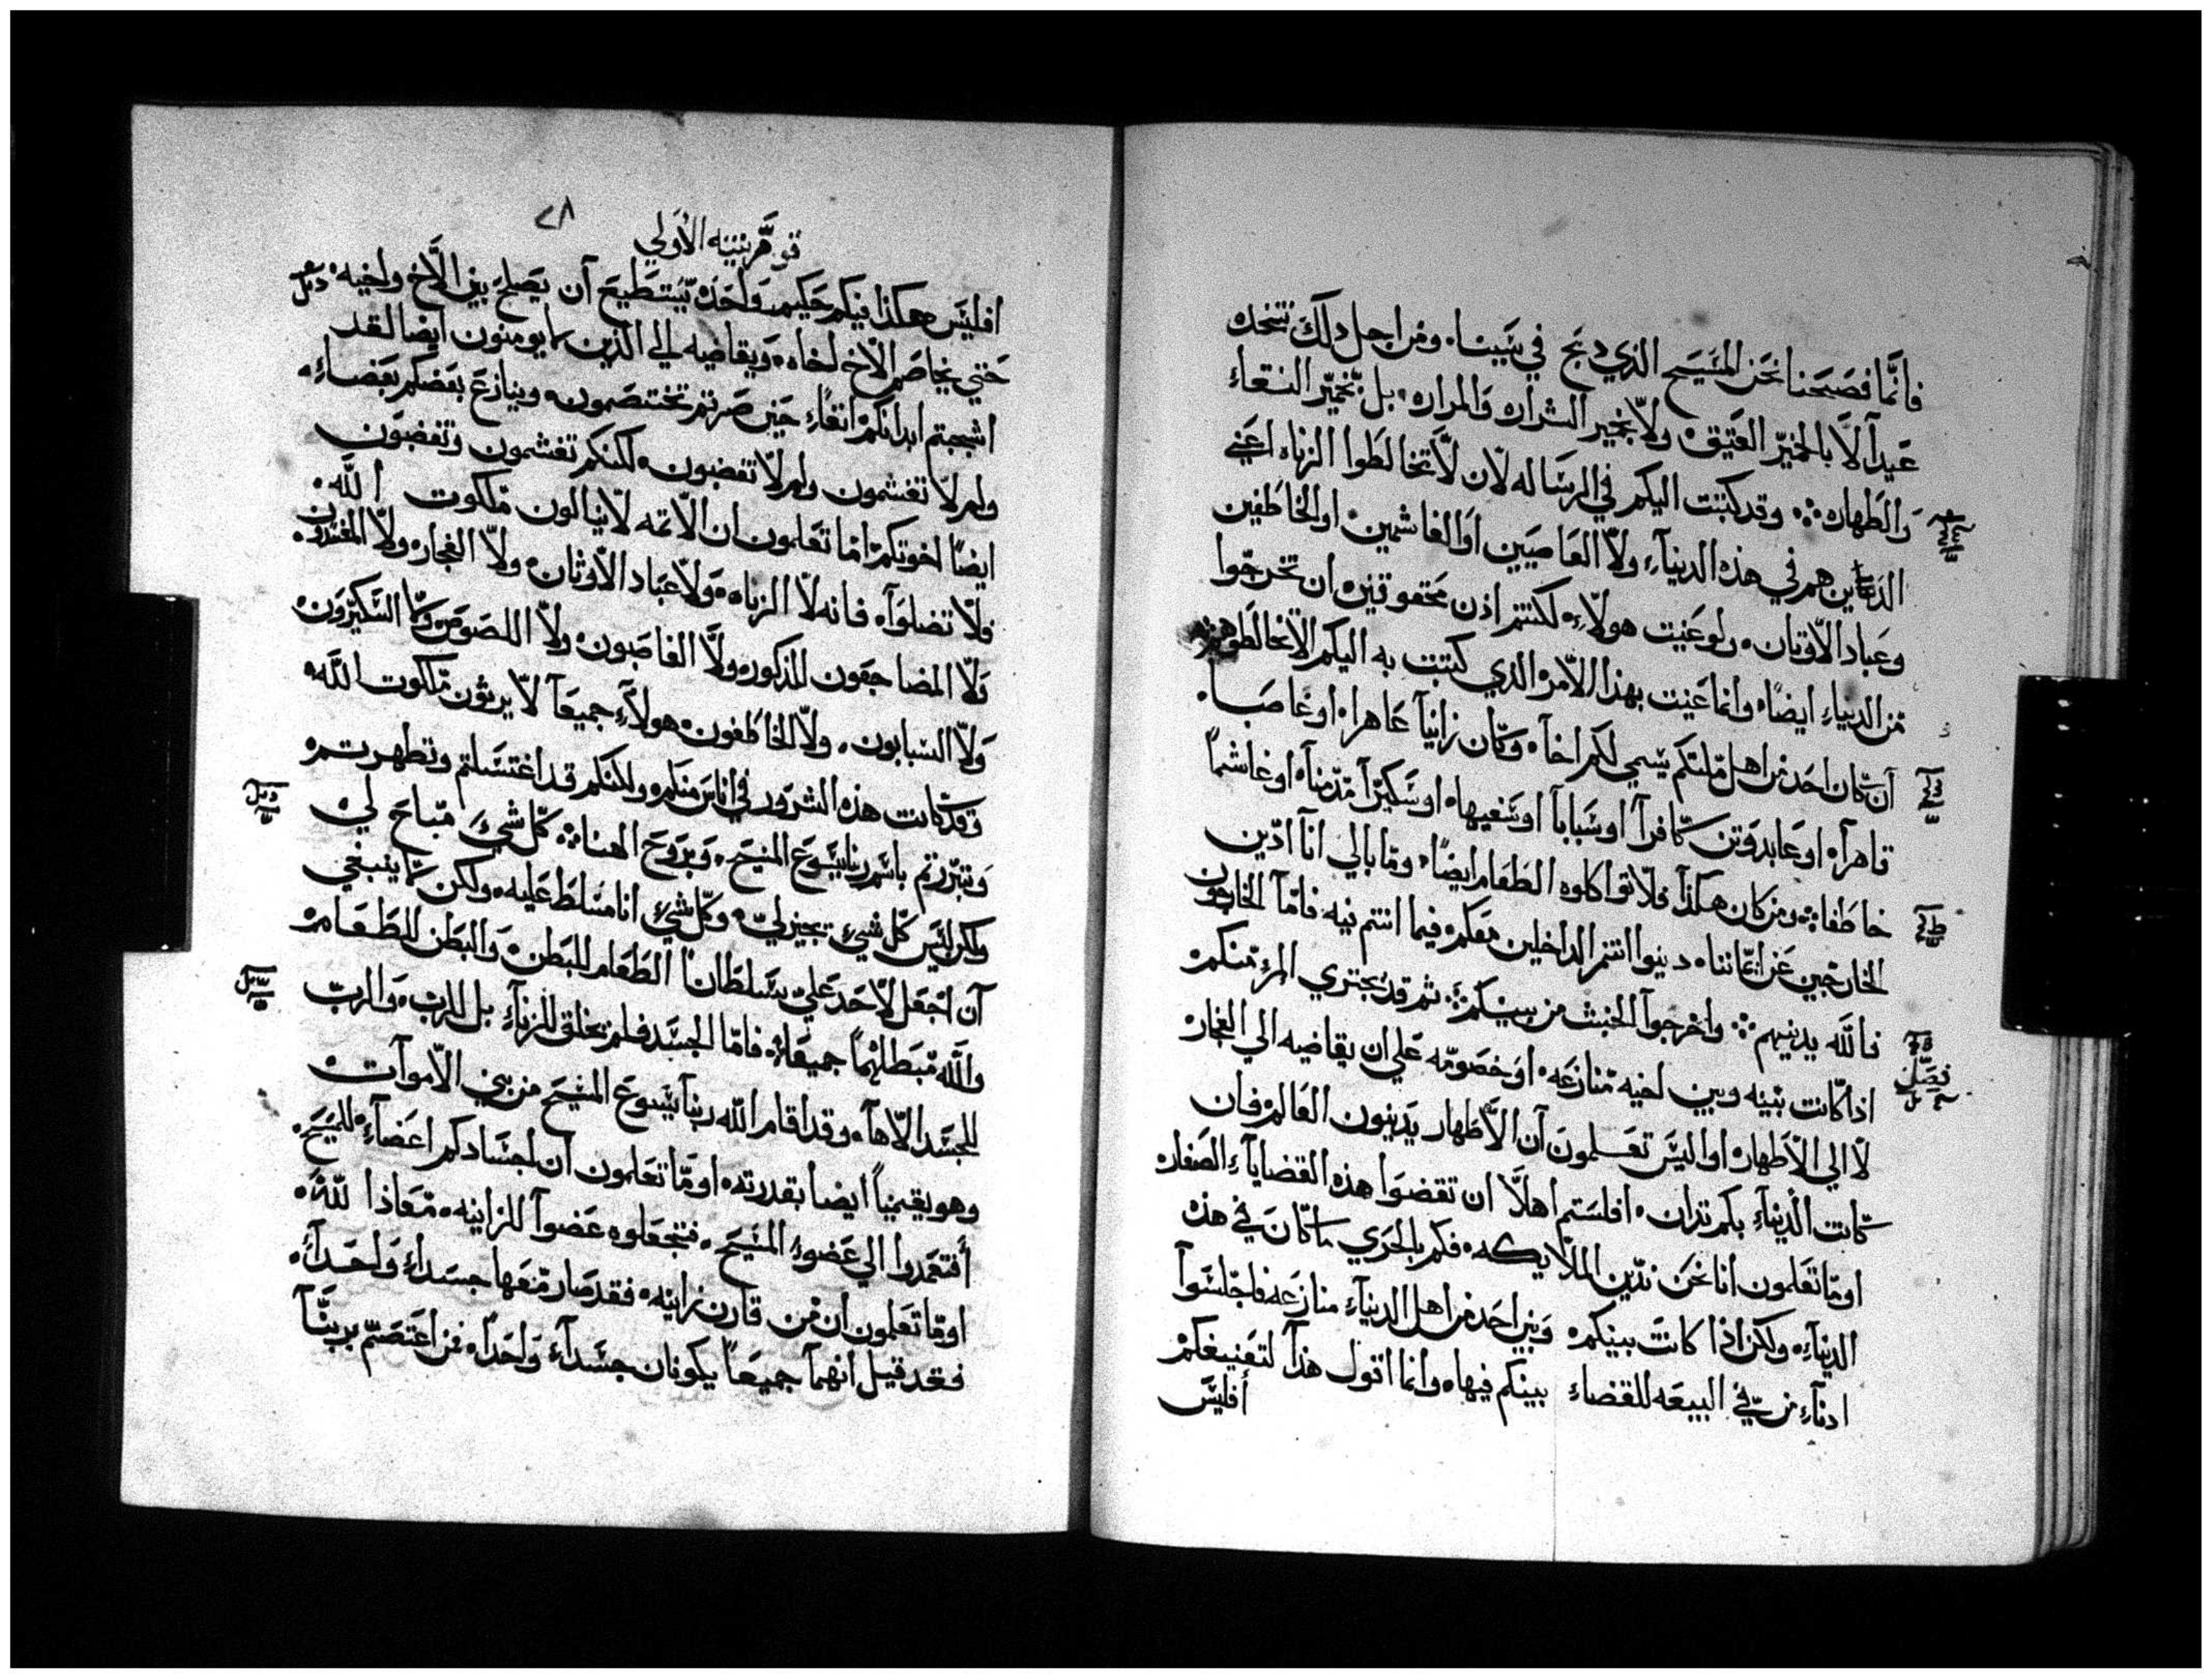 فانما فصحنا نحن المسيح الذي دبح في سببنا. ومن اجل دلك نتخد
عيداً لا بالخمير العتيق ولا بخمير الشراره والمراره. بل بخمير النقاء
والطهاره وقد كتبت اليكم في الرساله لان لا تخالطوا الزناه اعني
الدين هم في هذه الدنياء ولا العاصيين او الغاشمين او الخاطفين
وعباد الاوتان. ولو عنيت هولاء لكنتم اذن محقوقين ان تخرجوا
من الدنياء ايضاً وانما عنيت بهذا الامر الدي كتبت به اليكم الا تخالطوهم
ان كان احد من اهل ملتكم يسمي لكم اخاً وكان زانياً عاهرا او غاصباً
قاهراً او عابد وتن كافراً او سباباً او سفيها او سكيراً مدمناً او غاشماً
خاطفا ومن كان هكذا فلا تواكلوه الطعام ايضاً وما بالي انا ادين
الخارجين عن ايماننا دينوا انتم الداخلين معكم فيما انتم فيه فاما الخارجون
فالله يدينهم واخرجوا الخبث من بينكم ثم قد يجتري المرء منكم
فصل
اذا كانت بينه وبين اخيه منازعه او خصومه علي ان يقاضيه الي الفجار
لا الي الاطهار او اليس تعلمون ان الاطهار يدينون العالم فان
كانت الدنياء بكم تدان افلستم اهلاً ان تقضوا هذه القضاياء الصغار
اوما تعلمون انا نحن ندين الملايكه فكم بالحري ما كان في هذه
الدنياء ولكن اذا كانت بينكم وبين احد من اهل الدنياء منازعه فاجلسوا
ادناء من في البيعه للقضاء بينكم فيها وانما اقول هذا لتعنيفكم
أفليس
٢٨
قورنتيه الأولي
افليس هكذا فيكم حكيم واحد يستطيع ان يصلح بين الاخ واخيه
حتي يخاصم الاخ اخاه ويقاضيه الي الذين لا يومنون ايضا لقد
اشجبتم ابدانكم انفاً حين صرتم تختصمون وينازع بعضكم بعضاء
ولم لا تغشمون ولم لا تغضبون لكنكم تغشمون وتغضبون
ايضاً اخوتكم اما تعلمون ان الاتمه لا ينالون ملكوت الله
فلا تضلوا فانه لا الزناه ولا عباد الاوثان ولا الفجار ولا المفسدون
ولا المضاجعون للذكور ولا الغاصبون ولا اللصوص ولا السكيرون
ولا السبابون ولا الخاطفون هولاء جميعاً لا يرثون ملكوت الله
وقد كانت هذه الشرور في اناس منكم ولكنكم قد اغتسلتم وتطهرتم
وتبررتم باسم ربنا يسوع المسيح وبروح الهنا كل شيء مباح لي
ولكن ليس كل شيء يجيز لي وكل شيء انا مسلط عليه ولكن لا ينبغي
ان اجعل لاحد علي سلطاناً الطعام للبطن والبطن للطعام
والله مبطلهما جميعا فاما الجسد فلم يخلق للزناء بل للرب والرب
للجسد الاها وقد اقام الله ربنا يسوع المسيح من بين الاموات
وهو يقيمنا ايضا بقدرته اوما تعلمون ان اجسادكم اعضاء للمسيح
أفتعمدوا الي عضو المسيح فتجعلوه عضواً للزانيه معاذا لله
اوما تعلمون ان من قارن زانيه فقد صار معها جسداء واحداً
فقد قيل انهما جميعاً يكونان جسداء واحداً فمن اعتصم بربنا